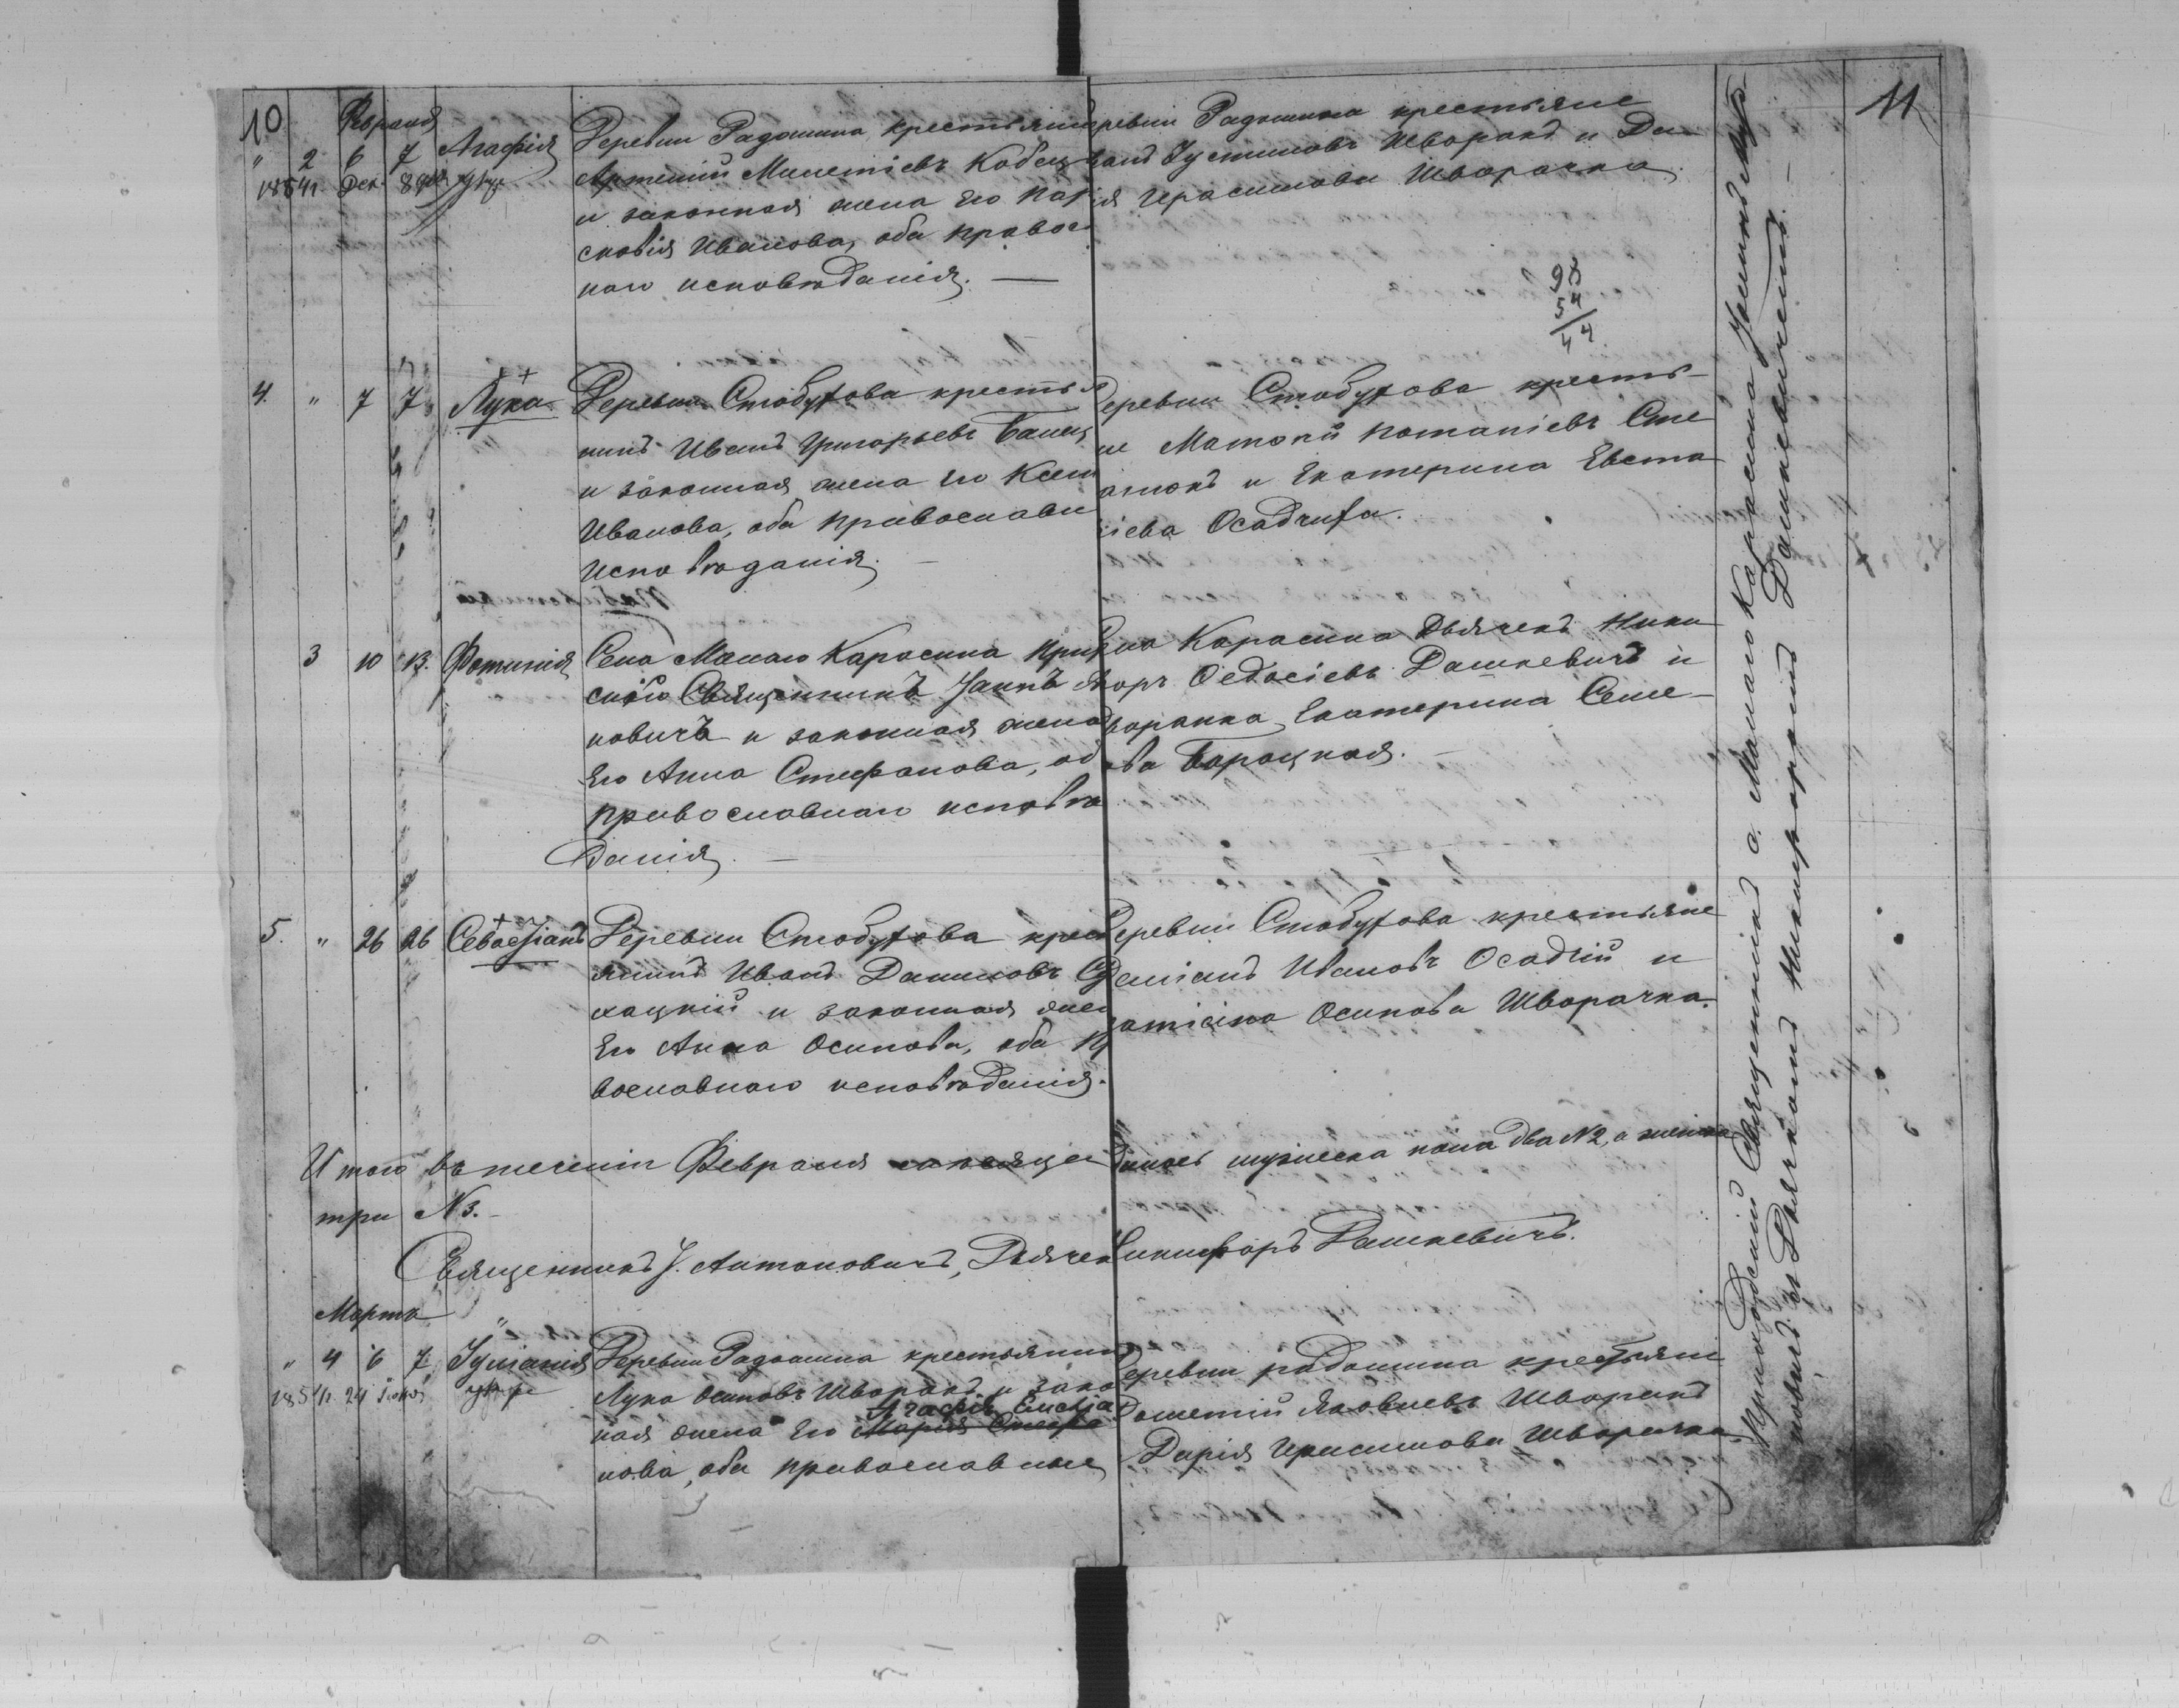 10
11
Февраля
" 2 6 7 Агафія
Деревни Радошина крестьянинъ
Артемій Милетіевъ Кобец
и законная жена его Пара
сковія Иванова, оба правос
наго исповѣданія. —
деревни Радошина крестьяне
Іустиновъ Шворакъ и Да
рія Герасимова Шворачка.
98
54
44
4. " 7 7 Лука
Деревни Стобухова крестья
нинъ Иванъ Григорьевъ Банец
и законная жена его Ксен
Иванова, оба православн
исповѣданія. —
Деревни Стобухова кресть-
не Матѳей Потапіевъ Сте
и Екатерина Евста
ѳіева Осадчуха.
3 10 13. Фотинія
Села Малаго Карасина При
скій Священникъ Іоаннъ
новичъ и законная жена
его Анна Стефанова, об
православнаго исповѣ
данія. —
Карасина Дьячекъ Ники
ѳоръ Ѳедосіевъ Дашкевичъ и
дворянка Екатерина Семе-
ова Бароцкая. —
5. " 26 26 Севастіанъ
Деревни Стобухова крес
янинъ Иванъ Даниловъ
хацкій и законная жен
его Анна Осипова, оба п
вославнаго исповѣданія.
Деревни Стобухова крестьяне
Даміанъ Ивановъ Осадчій и
Осипова Шворачка.
Итого въ теченіи Февраля мѣсяца мужеска пола два №2, а женска
три №3.
Священникъ І. Антоновичъ, Дьячекъ Никифоръ Дашкевичъ.
Мартъ
" 4 6 7 Іуліанія
Деревни Радошина крестьянинъ
Лука Осиповъ Шворакъ и зако
Агафія
ная жена его Марія Стефа
нова, оба православные
Деревни радошина крестьяне
Яковлевъ Шворакъ
Дарія Герасимова Шворачка.
Приходскій Священникъ с. Малаго Карасина Іоаннъ
новичъ Дьячкомъ Никифоромъ Дашкевичемъ. —